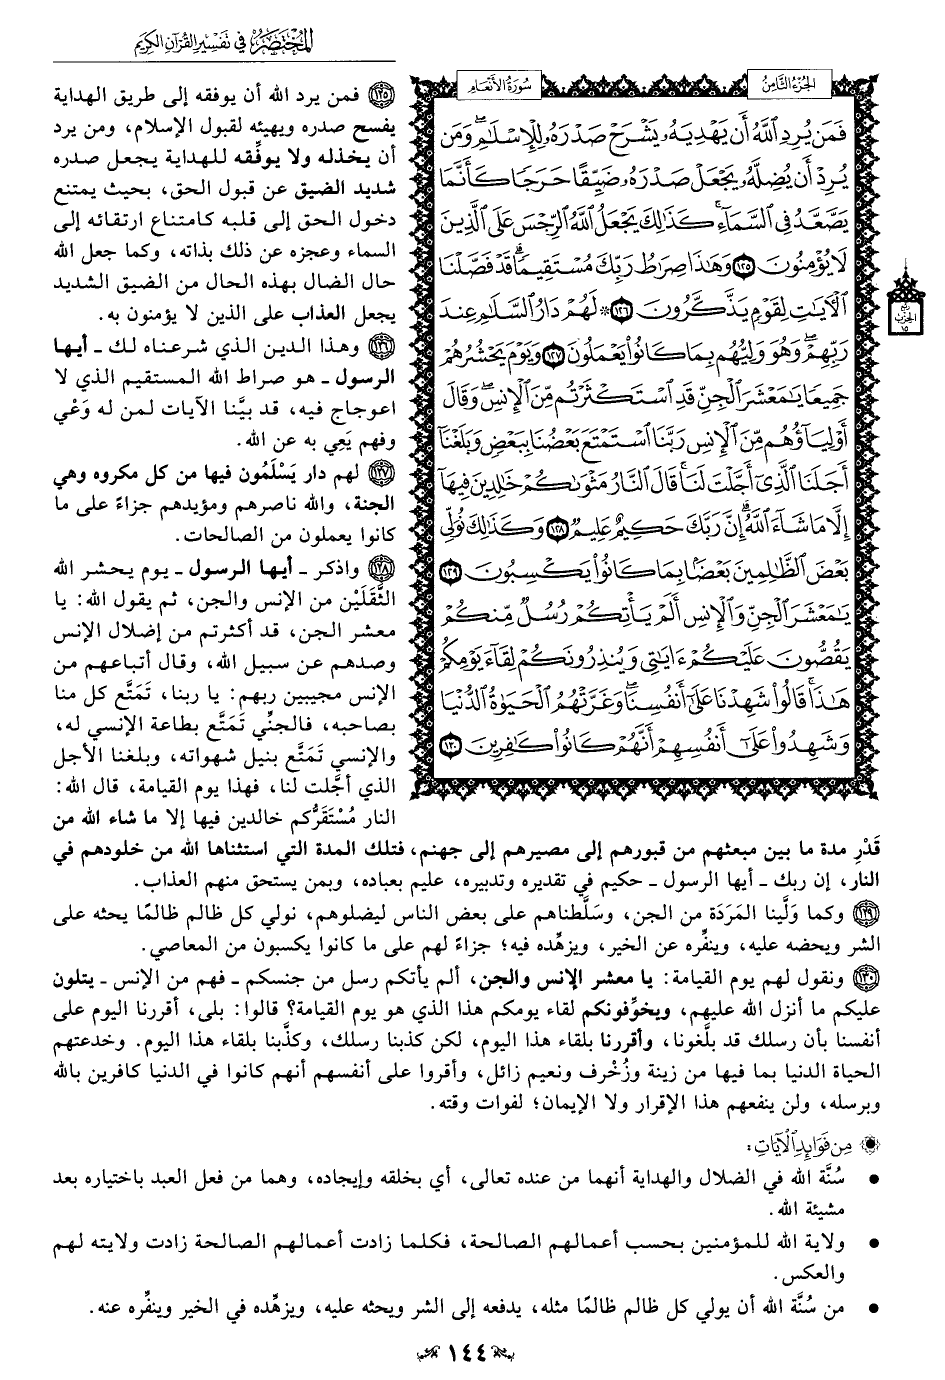 المختصر في تفسير القرآن الكريم
الجزء الثامن
سورة الأنعام
فَمَن يُرِدِ ٱللَّهُ أَن يَهْدِيَهُۥ يَشْرَحْ صَدْرَهُۥ لِلْإِسْلَٰمِ ۖ وَمَن
يُرِدْ أَن يُضِلَّهُۥ يَجْعَلْ صَدْرَهُۥ ضَيِّقًا حَرَجًا كَأَنَّمَا
يَصَّعَّدُ فِى ٱلسَّمَآءِ ۚ كَذَٰلِكَ يَجْعَلُ ٱللَّهُ ٱلرِّجْسَ عَلَى ٱلَّذِينَ
لَا يُؤْمِنُونَ ١٢٥ وَهَٰذَا صِرَٰطُ رَبِّكَ مُسْتَقِيمًا ۗ قَدْ فَصَّلْنَا
ٱلْءَايَٰتِ لِقَوْمٍ يَذَّكَّرُونَ ١٢٦ ۞ لَهُمْ دَارُ ٱلسَّلَٰمِ عِندَ
رَبِّهِمْ ۖ وَهُوَ وَلِيُّهُم بِمَا كَانُوا۟ يَعْمَلُونَ ١٢٧ وَيَوْمَ يَحْشُرُهُمْ
جَمِيعًا يَٰمَعْشَرَ ٱلْجِنِّ قَدِ ٱسْتَكْثَرْتُم مِّنَ ٱلْإِنسِ ۖ وَقَالَ
أَوْلِيَآؤُهُم مِّنَ ٱلْإِنسِ رَبَّنَا ٱسْتَمْتَعَ بَعْضُنَا بِبَعْضٍ وَبَلَغْنَآ
أَجَلَنَا ٱلَّذِىٓ أَجَّلْتَ لَنَا ۚ قَالَ ٱلنَّارُ مَثْوَىٰكُمْ خَٰلِدِينَ فِيهَآ
إِلَّا مَا شَآءَ ٱللَّهُ ۗ إِنَّ رَبَّكَ حَكِيمٌ عَلِيمٌ ١٢٨ وَكَذَٰلِكَ نُوَلِّى
بَعْضَ ٱلظَّٰلِمِينَ بَعْضًۢا بِمَا كَانُوا۟ يَكْسِبُونَ ١٢٩
يَٰمَعْشَرَ ٱلْجِنِّ وَٱلْإِنسِ أَلَمْ يَأْتِكُمْ رُسُلٌ مِّنكُمْ
يَقُصُّونَ عَلَيْكُمْ ءَايَٰتِى وَيُنذِرُونَكُمْ لِقَآءَ يَوْمِكُمْ
هَٰذَا ۚ قَالُوا۟ شَهِدْنَا عَلَىٰٓ أَنفُسِنَا ۖ وَغَرَّتْهُمُ ٱلْحَيَوٰةُ ٱلدُّنْيَا
وَشَهِدُوا۟ عَلَىٰٓ أَنفُسِهِمْ أَنَّهُمْ كَانُوا۟ كَٰفِرِينَ ١٣٠
ربع
الحزب
١٥
١٢٥ فمن يرد الله أن يوفقه إلى طريق الهداية
يفسح صدره ويهيئه لقبول الإسلام، ومن يرد
أن يخذله ولا يوفِّقه للهداية يجعل صدره
شديد الضيق عن قبول الحق، بحيث يمتنع
دخول الحق إلى قلبه كامتناع ارتقائه إلى
السماء وعجزه عن ذلك بذاته، وكما جعل الله
حال الضال بهذه الحال من الضيق الشديد
يجعل العذاب على الذين لا يؤمنون به.
١٢٦ وهذا الدين الذي شرعناه لك ـ أيها
الرسول ـ هو صراط الله المستقيم الذي لا
اعوجاج فيه، قد بيَّنا الآيات لمن له وَعْي
وفهم يَعِي به عن الله.
١٢٧ لهم دار يَسْلَمُون فيها من كل مكروه وهي
الجنة، والله ناصرهم ومؤيدهم جزاءً على ما
كانوا يعملون من الصالحات.
١٢٨ واذكر ـ أيها الرسول ـ يوم يحشر الله
الثَّقَلَيْن من الإنس والجن، ثم يقول الله: يا
معشر الجن، قد أكثرتم من إضلال الإنس
وصدهم عن سبيل الله، وقال أتباعهم من
الإنس مجيبين ربهم: يا ربنا، تَمَتَّع كل منا
بصاحبه، فالجنِّي تَمَتَّع بطاعة الإنسي له،
والإنسي تَمَتَّع بنيل شهواته، وبلغنا الأجل
الذي أجَّلت لنا، فهذا يوم القيامة، قال الله:
النار مُسْتَقَرُّكم خالدين فيها إلا ما شاء الله من
قَدْرِ مدة ما بين مبعثهم من قبورهم إلى مصيرهم إلى جهنم، فتلك المدة التي استثناها الله من خلودهم في
النار، إن ربك ـ أيها الرسول ـ حكيم في تقديره وتدبيره، عليم بعباده، وبمن يستحق منهم العذاب.
١٢٩ وكما وَلَّينا المَرَدَة من الجن، وسَلَّطناهم على بعض الناس ليضلوهم، نولي كل ظالم ظالمًا يحثه على
الشر ويحضه عليه، وينفِّره عن الخير، ويزهِّده فيه؛ جزاءً لهم على ما كانوا يكسبون من المعاصي.
١٣٠ ونقول لهم يوم القيامة: يا معشر الإنس والجن، ألم يأتكم رسل من جنسكم ـ فهم من الإنس ـ يتلون
عليكم ما أنزل الله عليهم، ويخوِّفونكم لقاء يومكم هذا الذي هو يوم القيامة؟ قالوا: بلى، أقررنا اليوم على
أنفسنا بأن رسلك قد بلَّغونا، وأقررنا بلقاء هذا اليوم، لكن كذبنا رسلك، وكذَّبنا بلقاء هذا اليوم. وخدعتهم
الحياة الدنيا بما فيها من زينة وزُخْرف ونعيم زائل، وأقروا على أنفسهم أنهم كانوا في الدنيا كافرين بالله
وبرسله، ولن ينفعهم هذا الإقرار ولا الإيمان؛ لفوات وقته.
من فوائد الآيات:
• سُنَّة الله في الضلال والهداية أنهما من عنده تعالى، أي بخلقه وإيجاده، وهما من فعل العبد باختياره بعد
مشيئة الله.
• ولاية الله للمؤمنين بحسب أعمالهم الصالحة، فكلما زادت أعمالهم الصالحة زادت ولايته لهم
والعكس.
• من سُنَّة الله أن يولي كل ظالم ظالمًا مثله، يدفعه إلى الشر ويحثه عليه، ويزهِّده في الخير وينفِّره عنه.
١٤٤